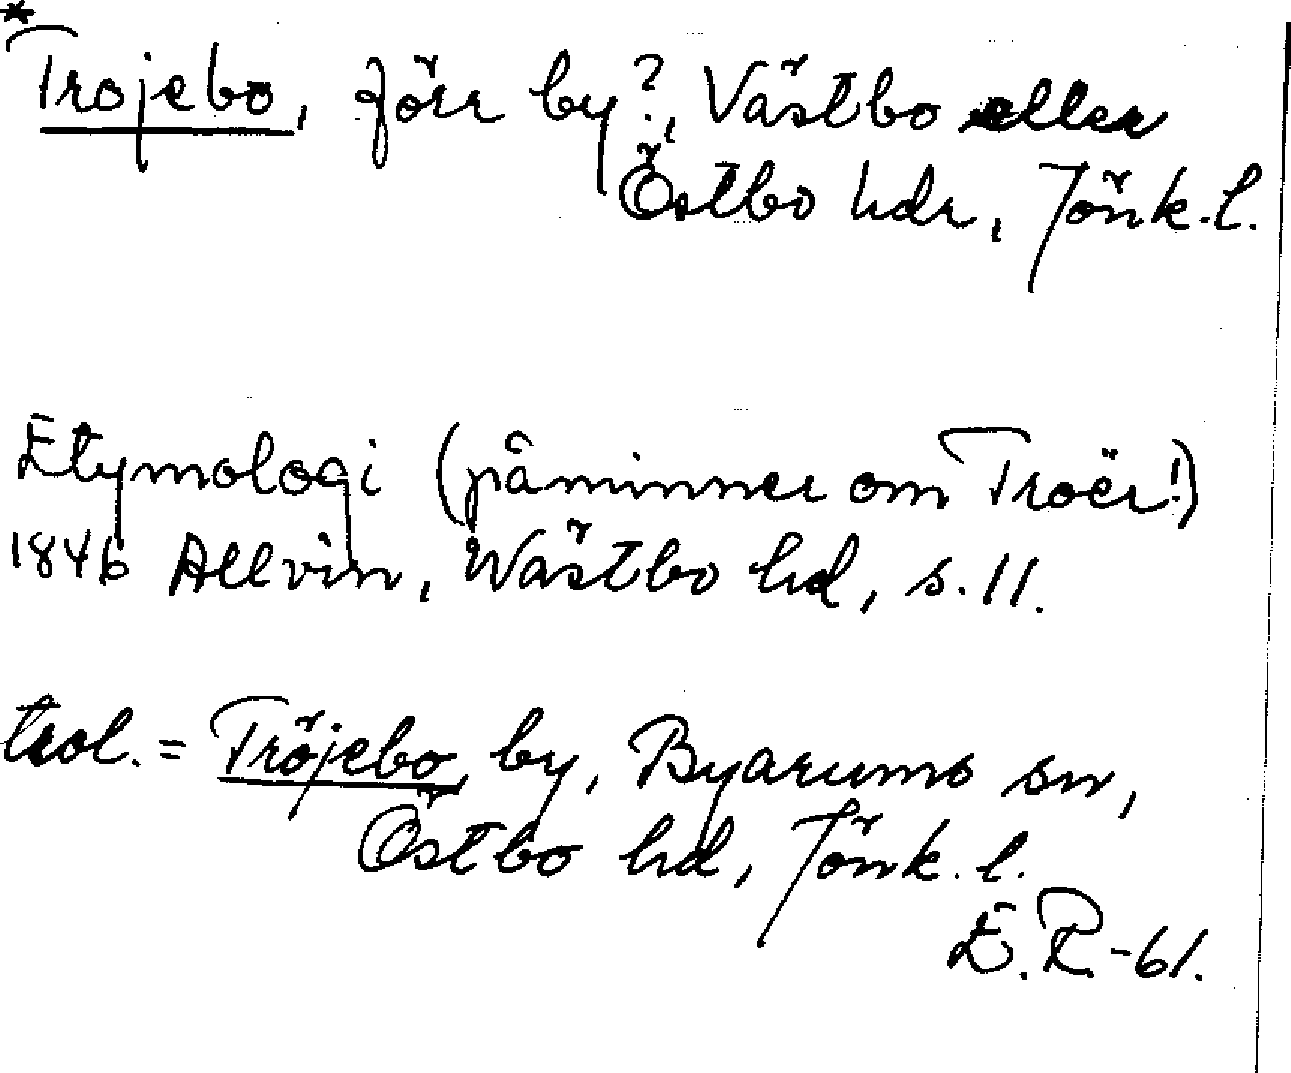 *
Trojebo, förr by?, Västbo eller
Östbo hdr, Jönk.l.
Etymologi (påminner om Troër!)
1846 Allvin, Wästbo hd, s. 11.
trol. = Tröjebo, by, Byarums sn,
Östbo hd, Jönk. l.
E.R-61.